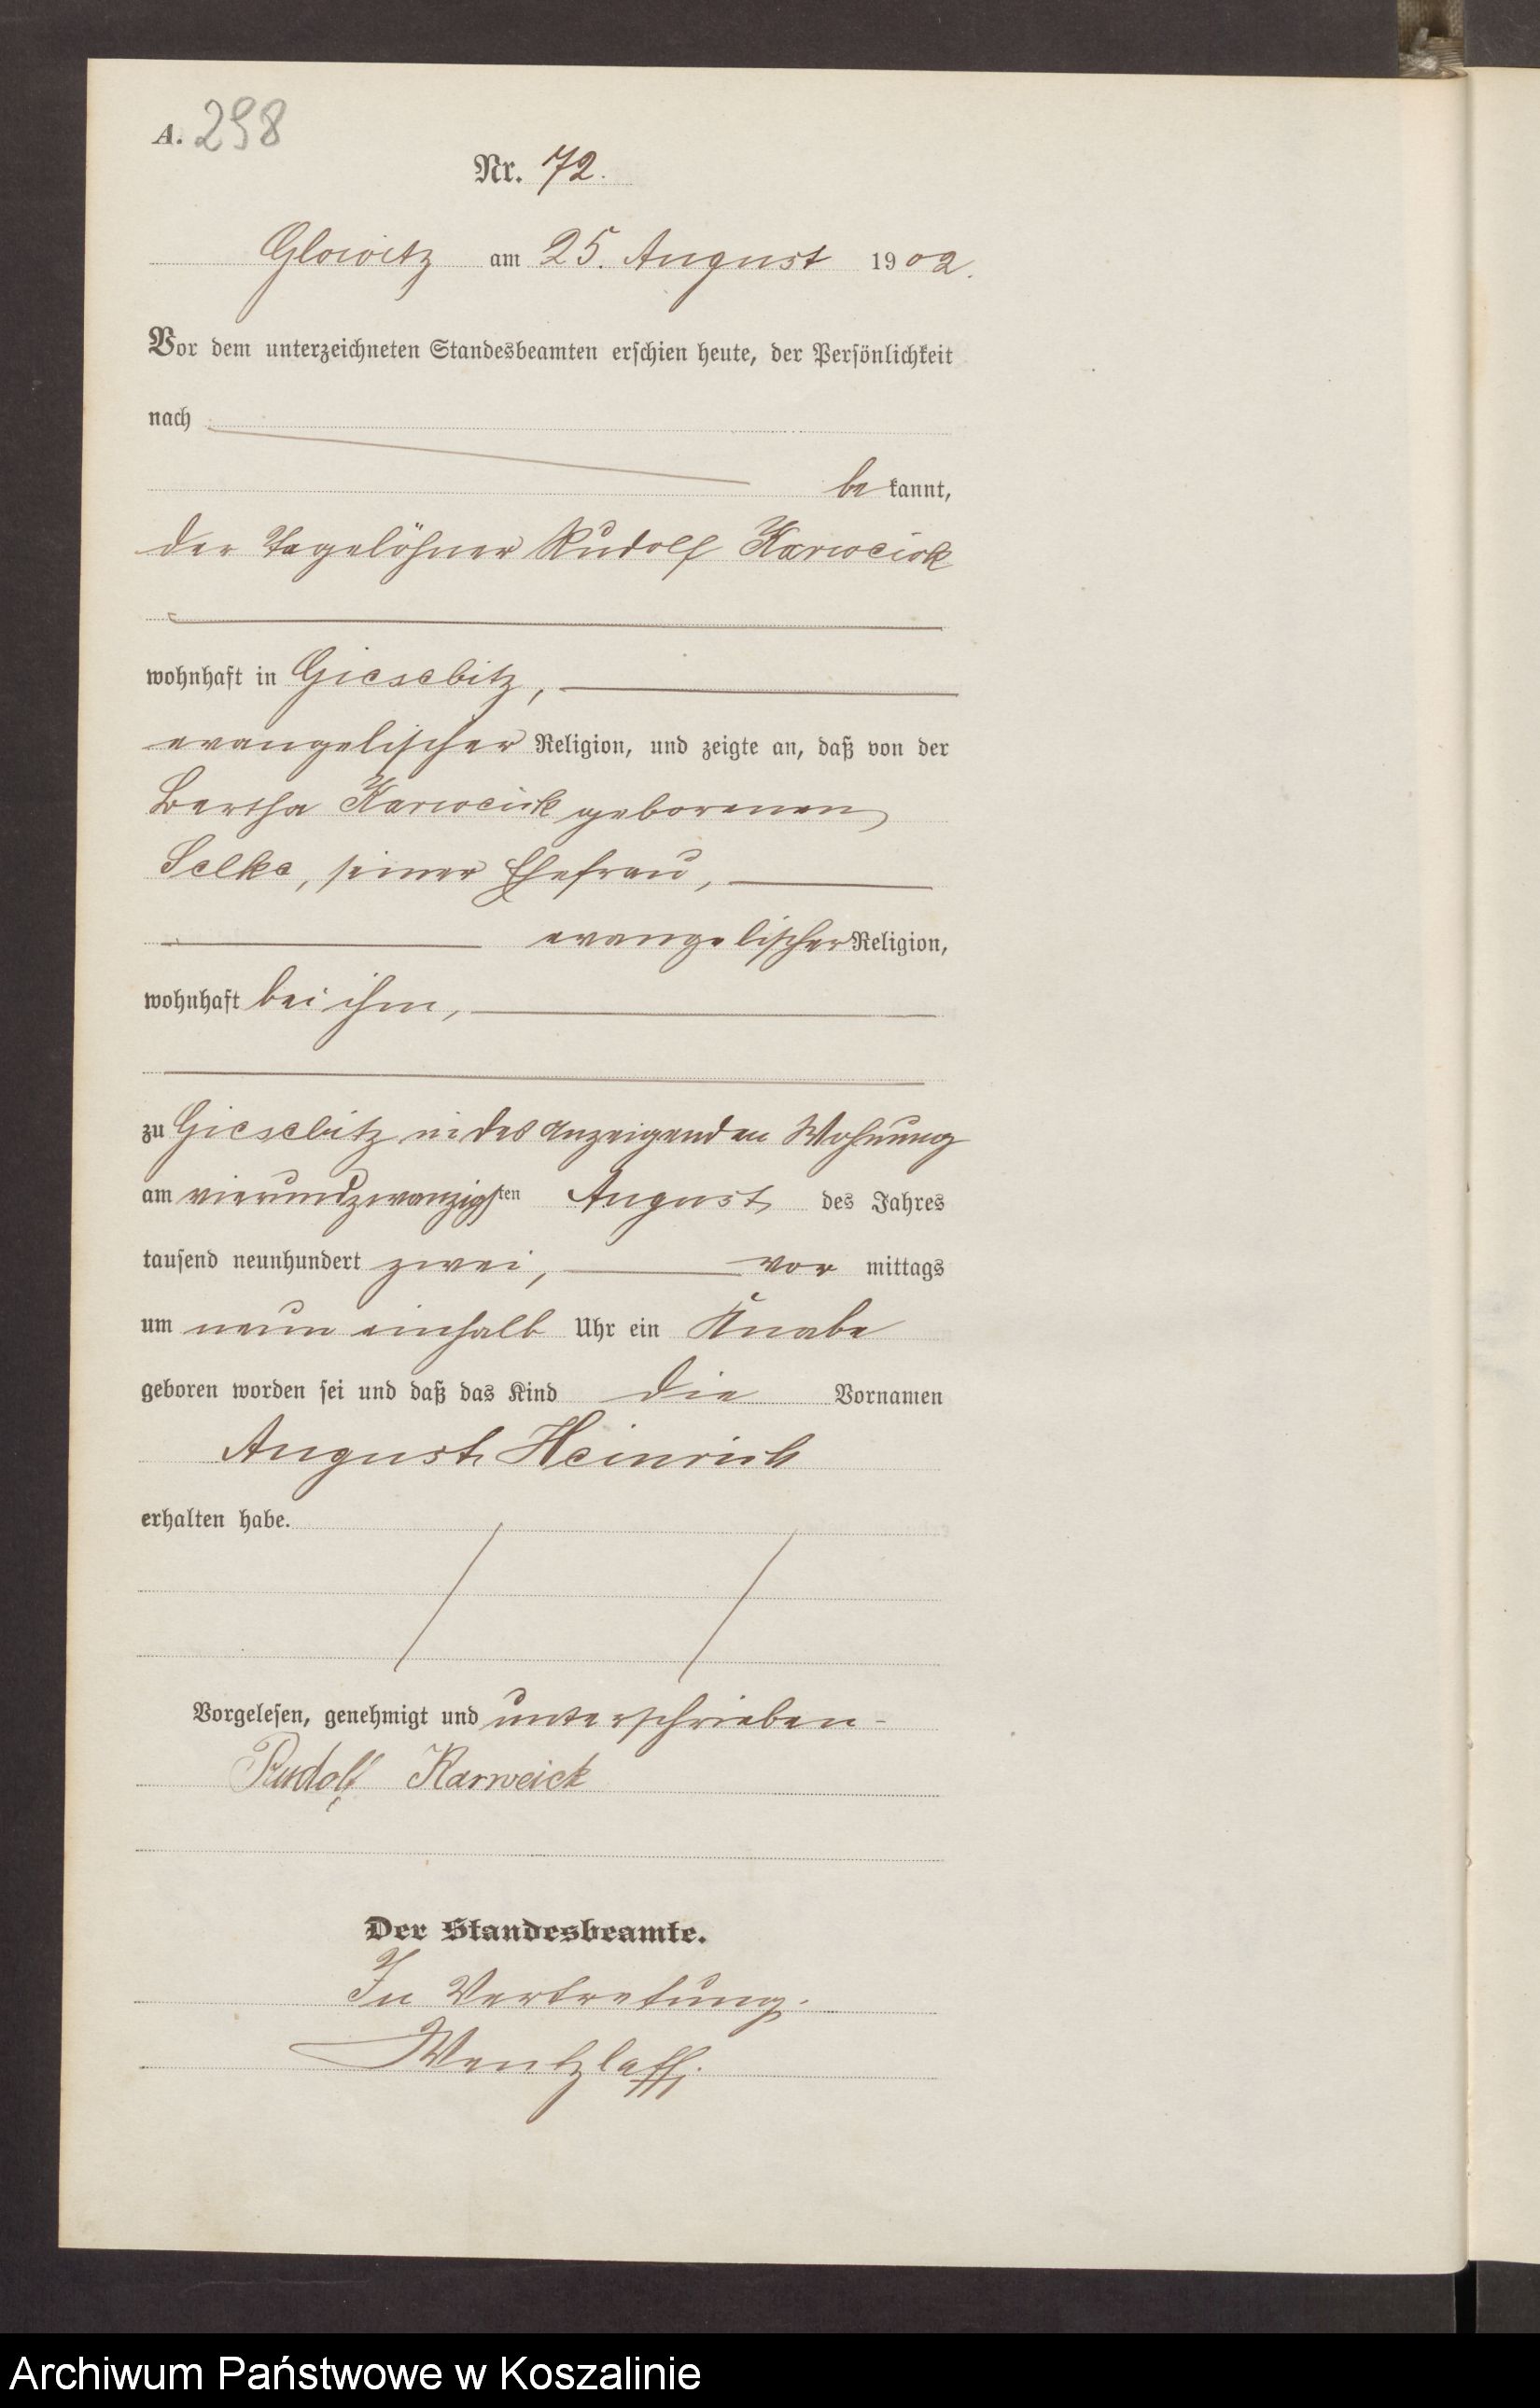 A. 298
Nr. 72.
Glowitz am 25. August 1902.
Vor dem unterzeichneten Standesbeamten erschien heute, der Persönlichkeit
nach
be kannt,
der Tagelöhner Rudolf Karweick
wohnhaft in Giesebitz,
evangelischer Religion, und zeigte an, daß von der
Bertha Karweick geborenen
Selke, seiner Ehefrau,
evangelischer Religion,
wohnhaft bei ihm,
zu Giesebitz in des Anzeigenden Wohnung
am vierundzwanzigsten August des Jahres
tausend neunhundert zwei, vor mittags
um neun einhalb Uhr ein Knabe
geboren worden sei und daß das Kind die Vornamen
August Heinrich
erhalten habe.
Vorgelesen, genehmigt und unterschrieben
Rudolf Karweick
Der Standesbeamte.
In Vertretung.
Wentzlaff.
Archiwum Państwowe w Koszalinie